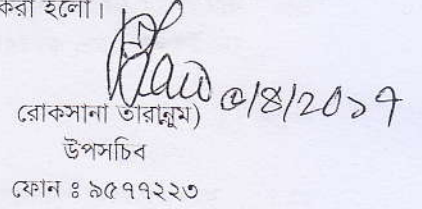 করা হলো।
৫/৪/২০১৭
রোকসানা তারান্নুম)
উপসচিব
ফোন ঃ ৯৫৭৭২২৩